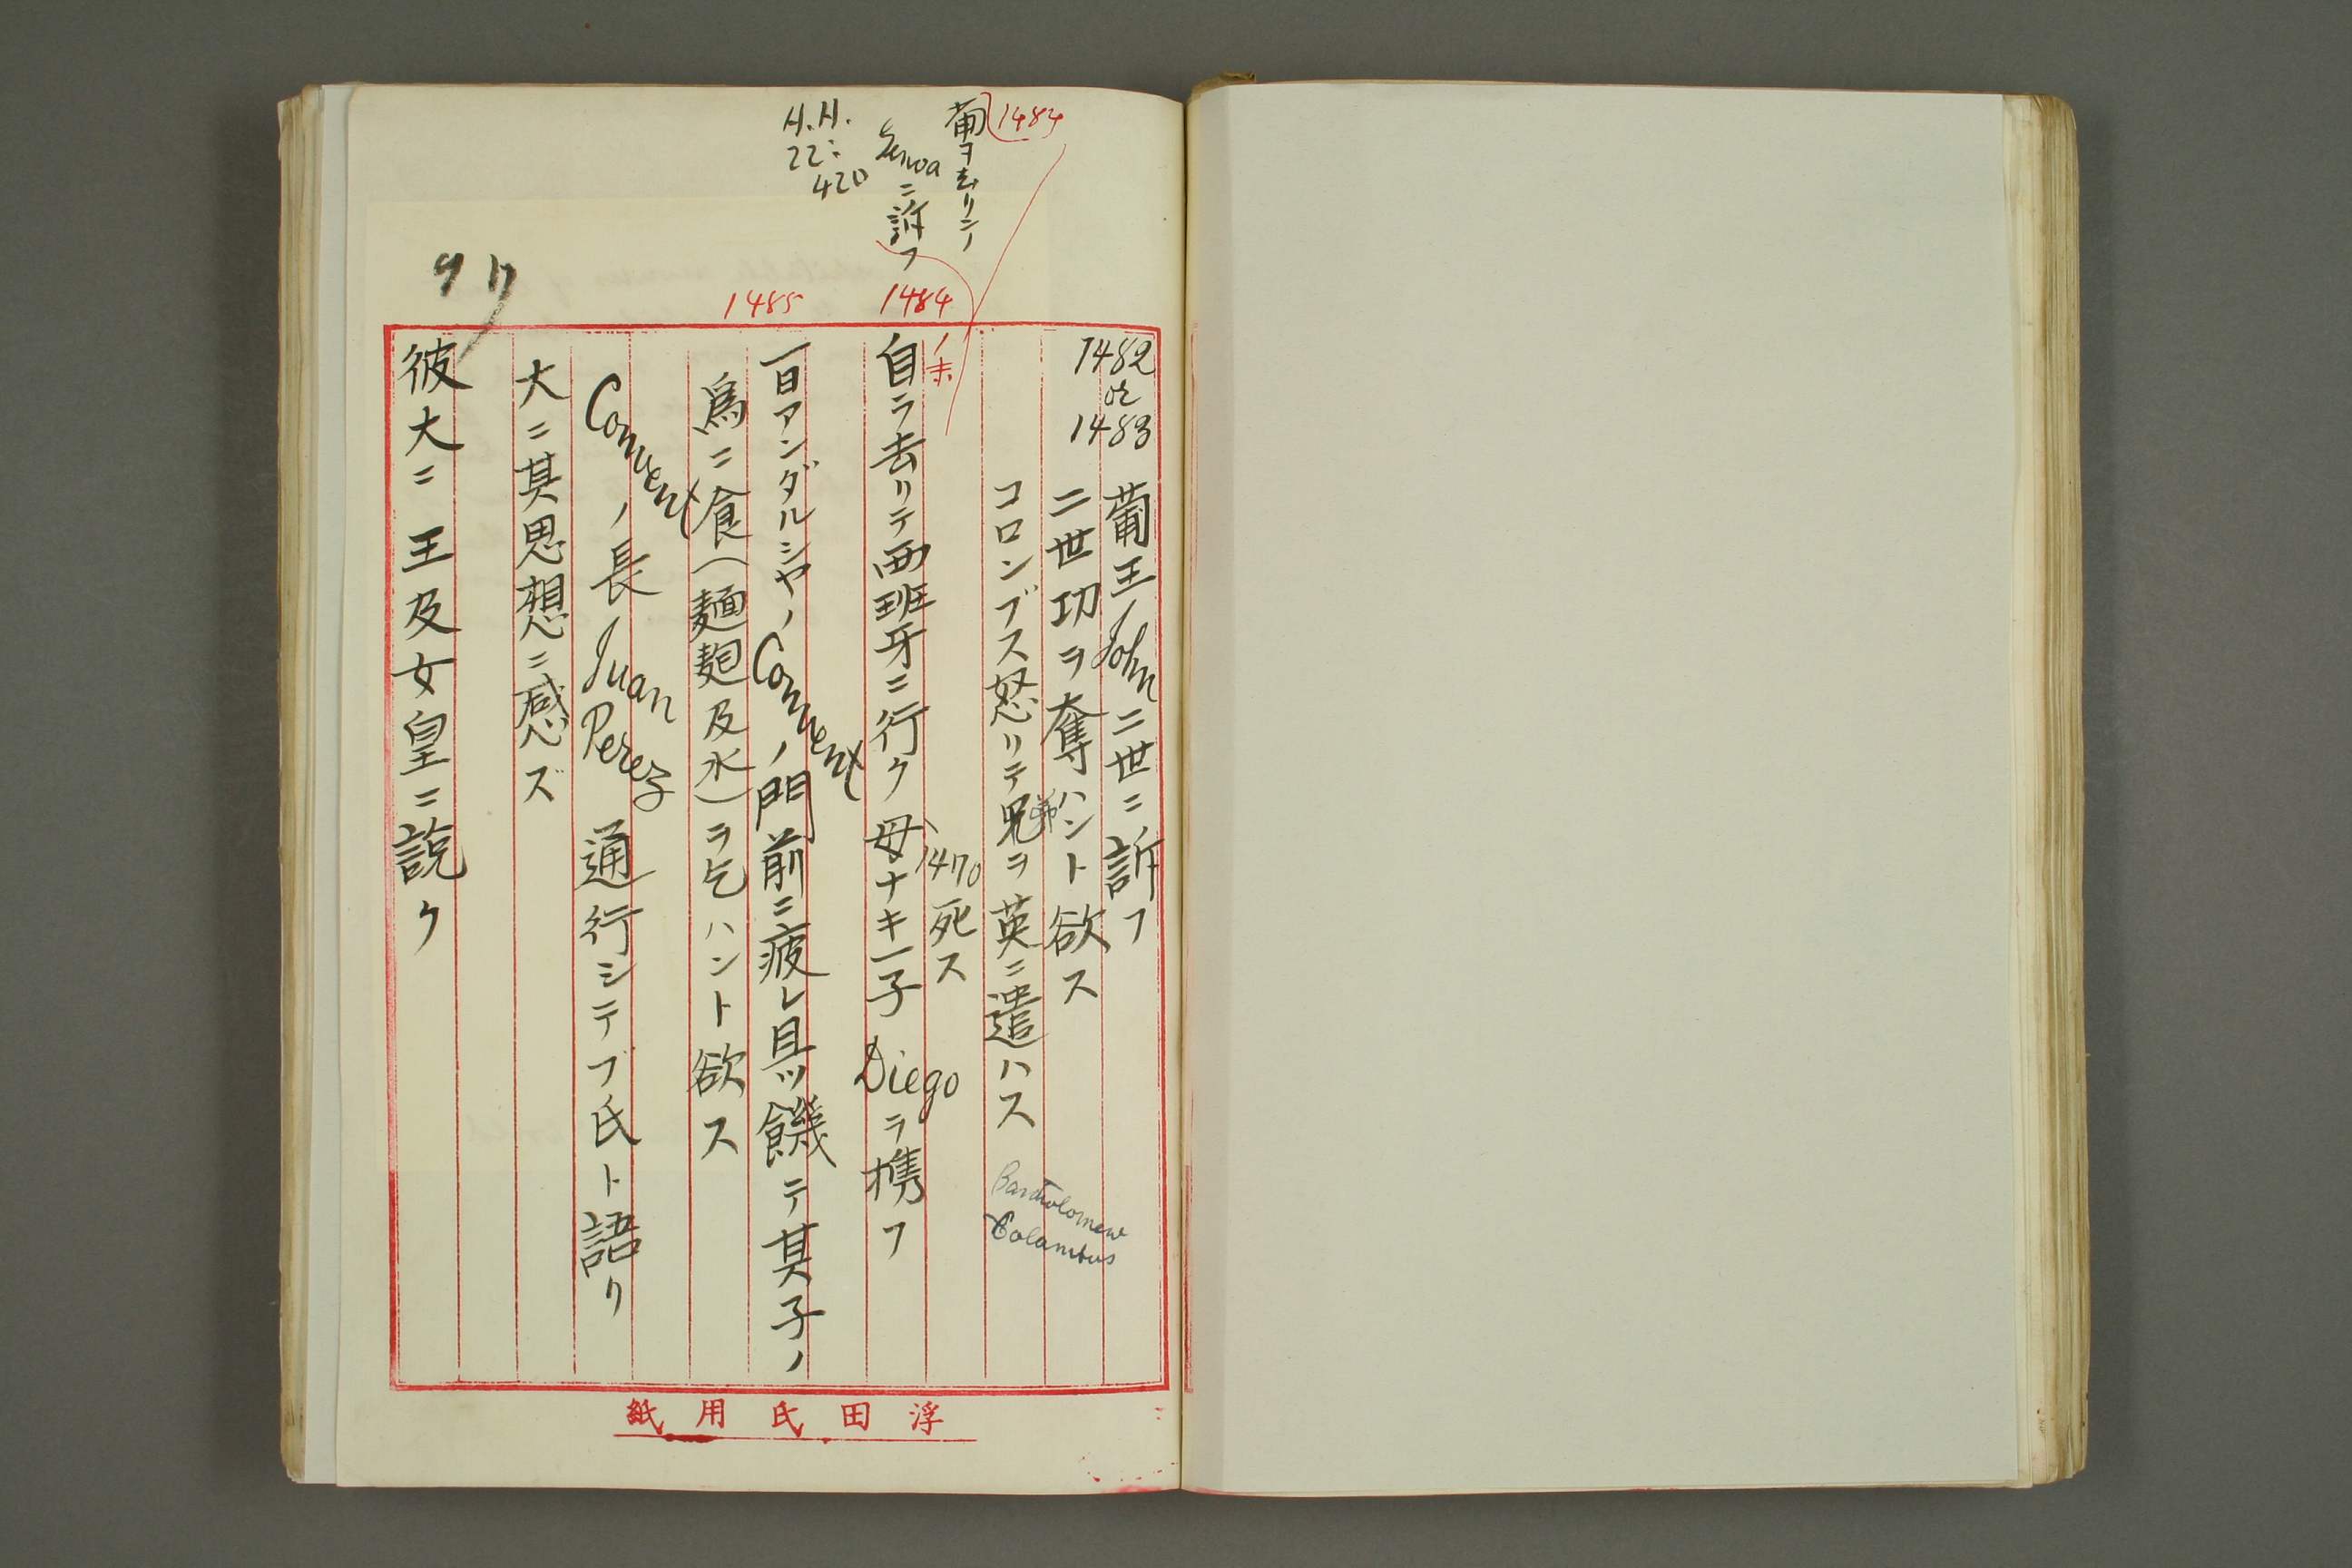 1484
葡ヲ去リテ
Genoa ニ訴フ
H.H.
22:
420
1484
1485
1482
or
1483
葡王John二世ニ訴フ
二世功ヲ奪ハント欲ス
コロンブス怒リテ兄弟ヲ英ニ遣ハス
Bartholomew
Columbus
ノ末
1470死ス
自ラ去リテ西班牙ニ行ク母ナキ一子Diegoヲ携フ
一日アンダルシヤノConventノ門前ニ疲レ且ツ饑テ其子ノ
為ニ食(麺麭及水)ヲ乞ハント欲ス
Conventノ長Juan Perez通行シテブ氏ト語リ
大ニ其思想ニ感ズ
彼大ニ王及女皇ニ説ク
浮田氏用紙